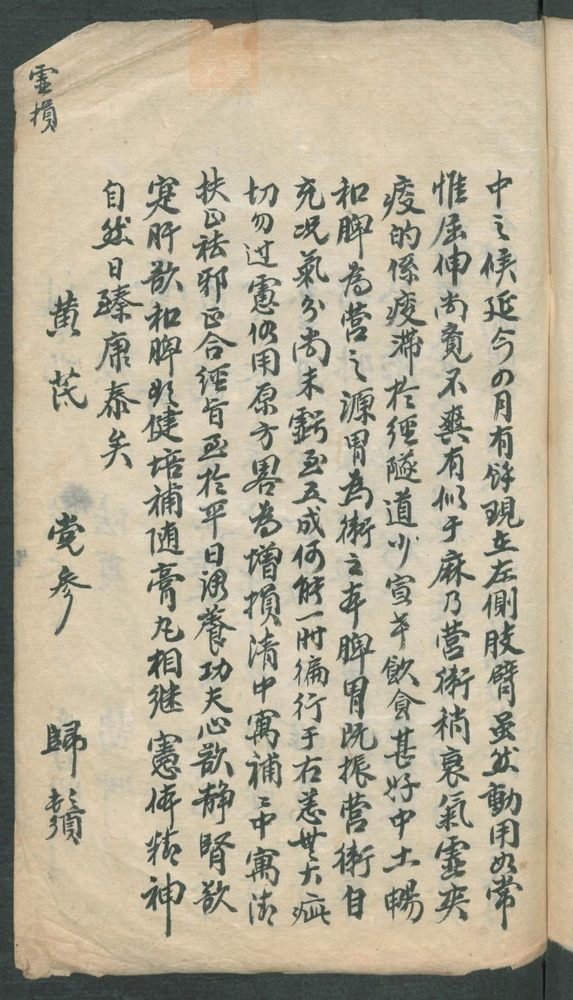 中之候延今四月有餘現在左側肢臂虽然動用如常
惟屈伸尚覓不爽有似于麻乃營衛稍衰氣虛夾
痰的係痰滞於經隧道少宣幸飲食甚好中土暢
和脾為營之源胃為衛之本脾胃既振營衛自
充况氣分尚未虧至五成何能一时徧行于右恙無大疵
切勿过慮仍用原方畧為增損清中寓補補中寓清
扶正祛邪正合經旨至於平日調養功夫心欲静腎欲
寔肝欲和脾欲健培補随膏丸相继憲体精神
自然日臻康泰矣
黄芪 党参 歸鬚
虛損